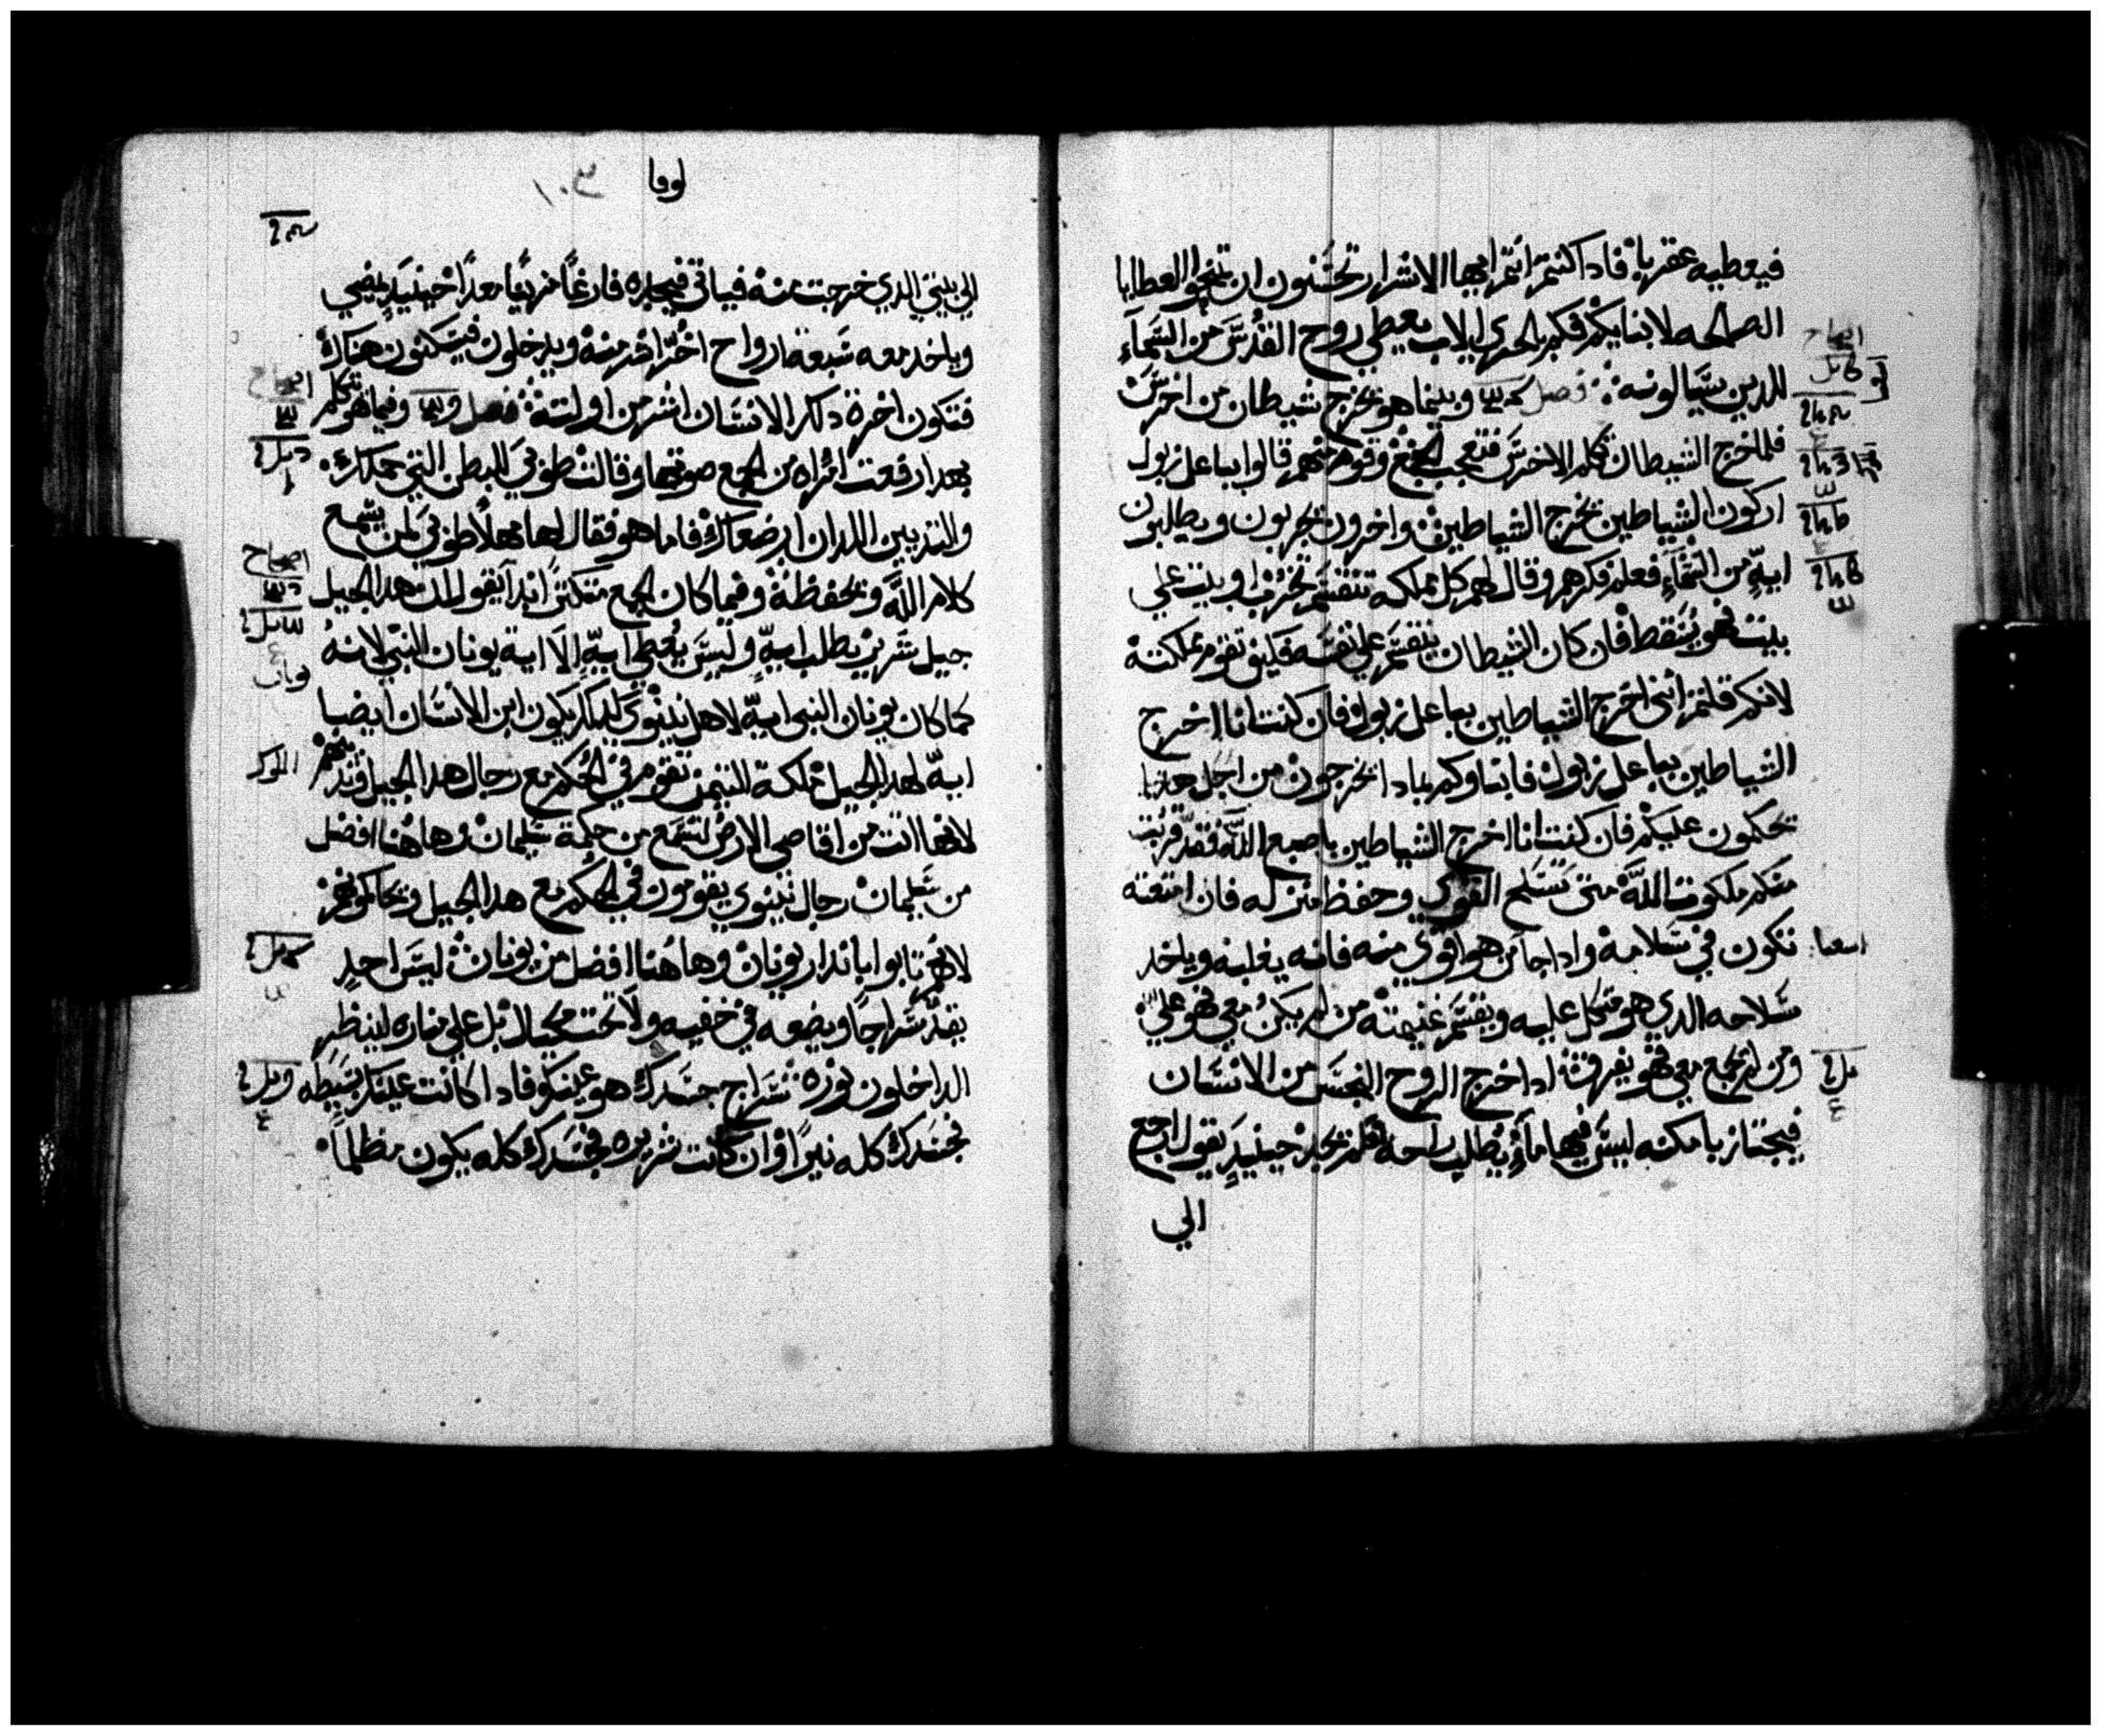 فيعطيه عقربا فاداكنتم انتم ايها الاشرار تحسنون ان تمنحوا العطايا
الصالحه لابنايكم فكم بالحري الاب يعطي روح القدس من السماء
للدين يسالونه فصل وبينما هو يخرج شيطان من اخرس
فلما خرج الشيطان تكلم الاخرس فتعجب الجمع وقوم منهم قالوا بباعل زبول
اركون الشياطين يخرج الشياطين واخرون يجربون ويطلبون
ايه من السماء فعلم فكرهم وقال لهم كل مملكه تنقسم تخرب وبيت علي
بيت فهو يسقط فان كان الشيطان ينقسم علي نفسه فكيف تقوم مملكته
لانكم قلتم انني اخرج الشياطين بباعل زبول فان كنت انا اخرج
الشياطين بباعل زبول فابناوكم بمادا يخرجون من اجل هدا
تحكمون عليكم فان كنت انا اخرج الشياطين باصبع الله فقد قربت
منكم ملكوت الله متي تسلح القوي وحفظ منزله فان امتعته
تكون في سلامه وادا جا من هو اقوي منه فانه يغلبه وياخد
سلاحه الدي هو متكل عليه ويقسم غنيمته من لم يكن معي فهو علي
ومن لم يجمع معي فهو يفرق ادا خرج الروح النجس من الانسان
فيجتاز بامكنه ليس فيها ماء يطلب راحه فلم يجد حينيد يقول ارجع
الي
لوقا ١٠٣
الي بيتي الدي خرجت منه فياتي فيجده فارغا مزينا معدا حينيد يمضي
وياخد معه سبعة ارواح اخر اشر منه ويدخلون فيسكنون هناك
فتكون اخرة دلك الانسان اشر من اولته فصل وفيما هو يتكلم
بهدا رفعت امراه من الجمع صوتها وقالت طوبي للبطن التي حملتك
والتديين اللدان ارضعاك فاما هو فقال لها مهلا طوبي لمن يسمع
كلام الله ويحفظه وفيما كان الجمع متكتر ابدا يقول ان هدا الجيل
جيل شرير يطلب ايه وليس يعطي ايه الا اية يونان النبي لانه
كما كان يونان النبي ايه لاهل نينوي كدلك يكون ابن الانسان ايضا
ايه لهدا الجيل ملكة التيمن تقوم في الحكم مع رجال هدا الجيل وتدينهم
لانها اتت من اقاصي الارض لتسمع من حكمة سليمان وهاهنا افضل
من سليمان رجال نينوي يقومون في الحكم مع هدا الجيل ويحاكمونه
لانهم تابوا باندار يونان وهاهنا افضل من يونان ليس احد
يقد سراجا ويضعه في خفيه ولا تحت مكيال بل علي مناره لينظر
الداخلون نوره سراج جسدك هو عينك فادا كانت عينك بسيطه
فجسدك كله نيرا وان كانت شريره فجسدك كله يكون مظلما